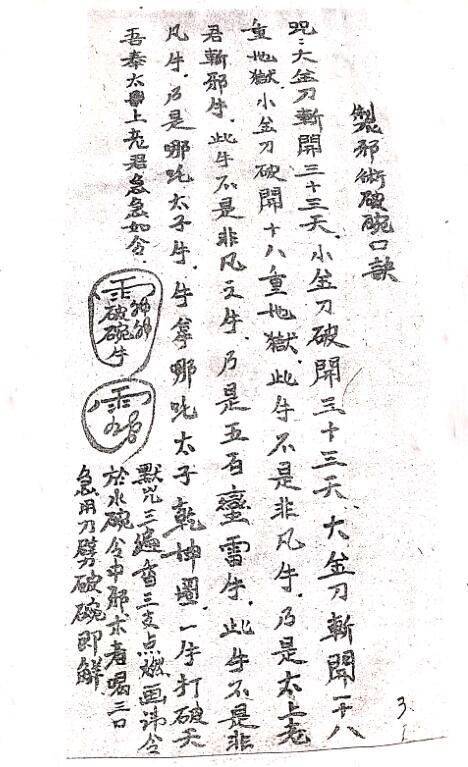 製邪術破碗口訣
咒：大金刀斬開三十三天、小金刀破開三十三天、大金刀斬開一十八
重地獄、小金刀破開十八重地獄、此牛不是非凡牛、乃是太上老
君斬邪牛、此牛不是非凡之牛、乃是五百蠻雷牛、此牛不是非
凡牛、乃是哪吒太子牛、牛拿哪吒太子乾坤圈、一牛打破天
吾奉太上老君急急如令
破碗牛
默咒三遍香三支点燃画諱令
於水碗令中邪術者喝三口
急用刀劈破碗即解
3.